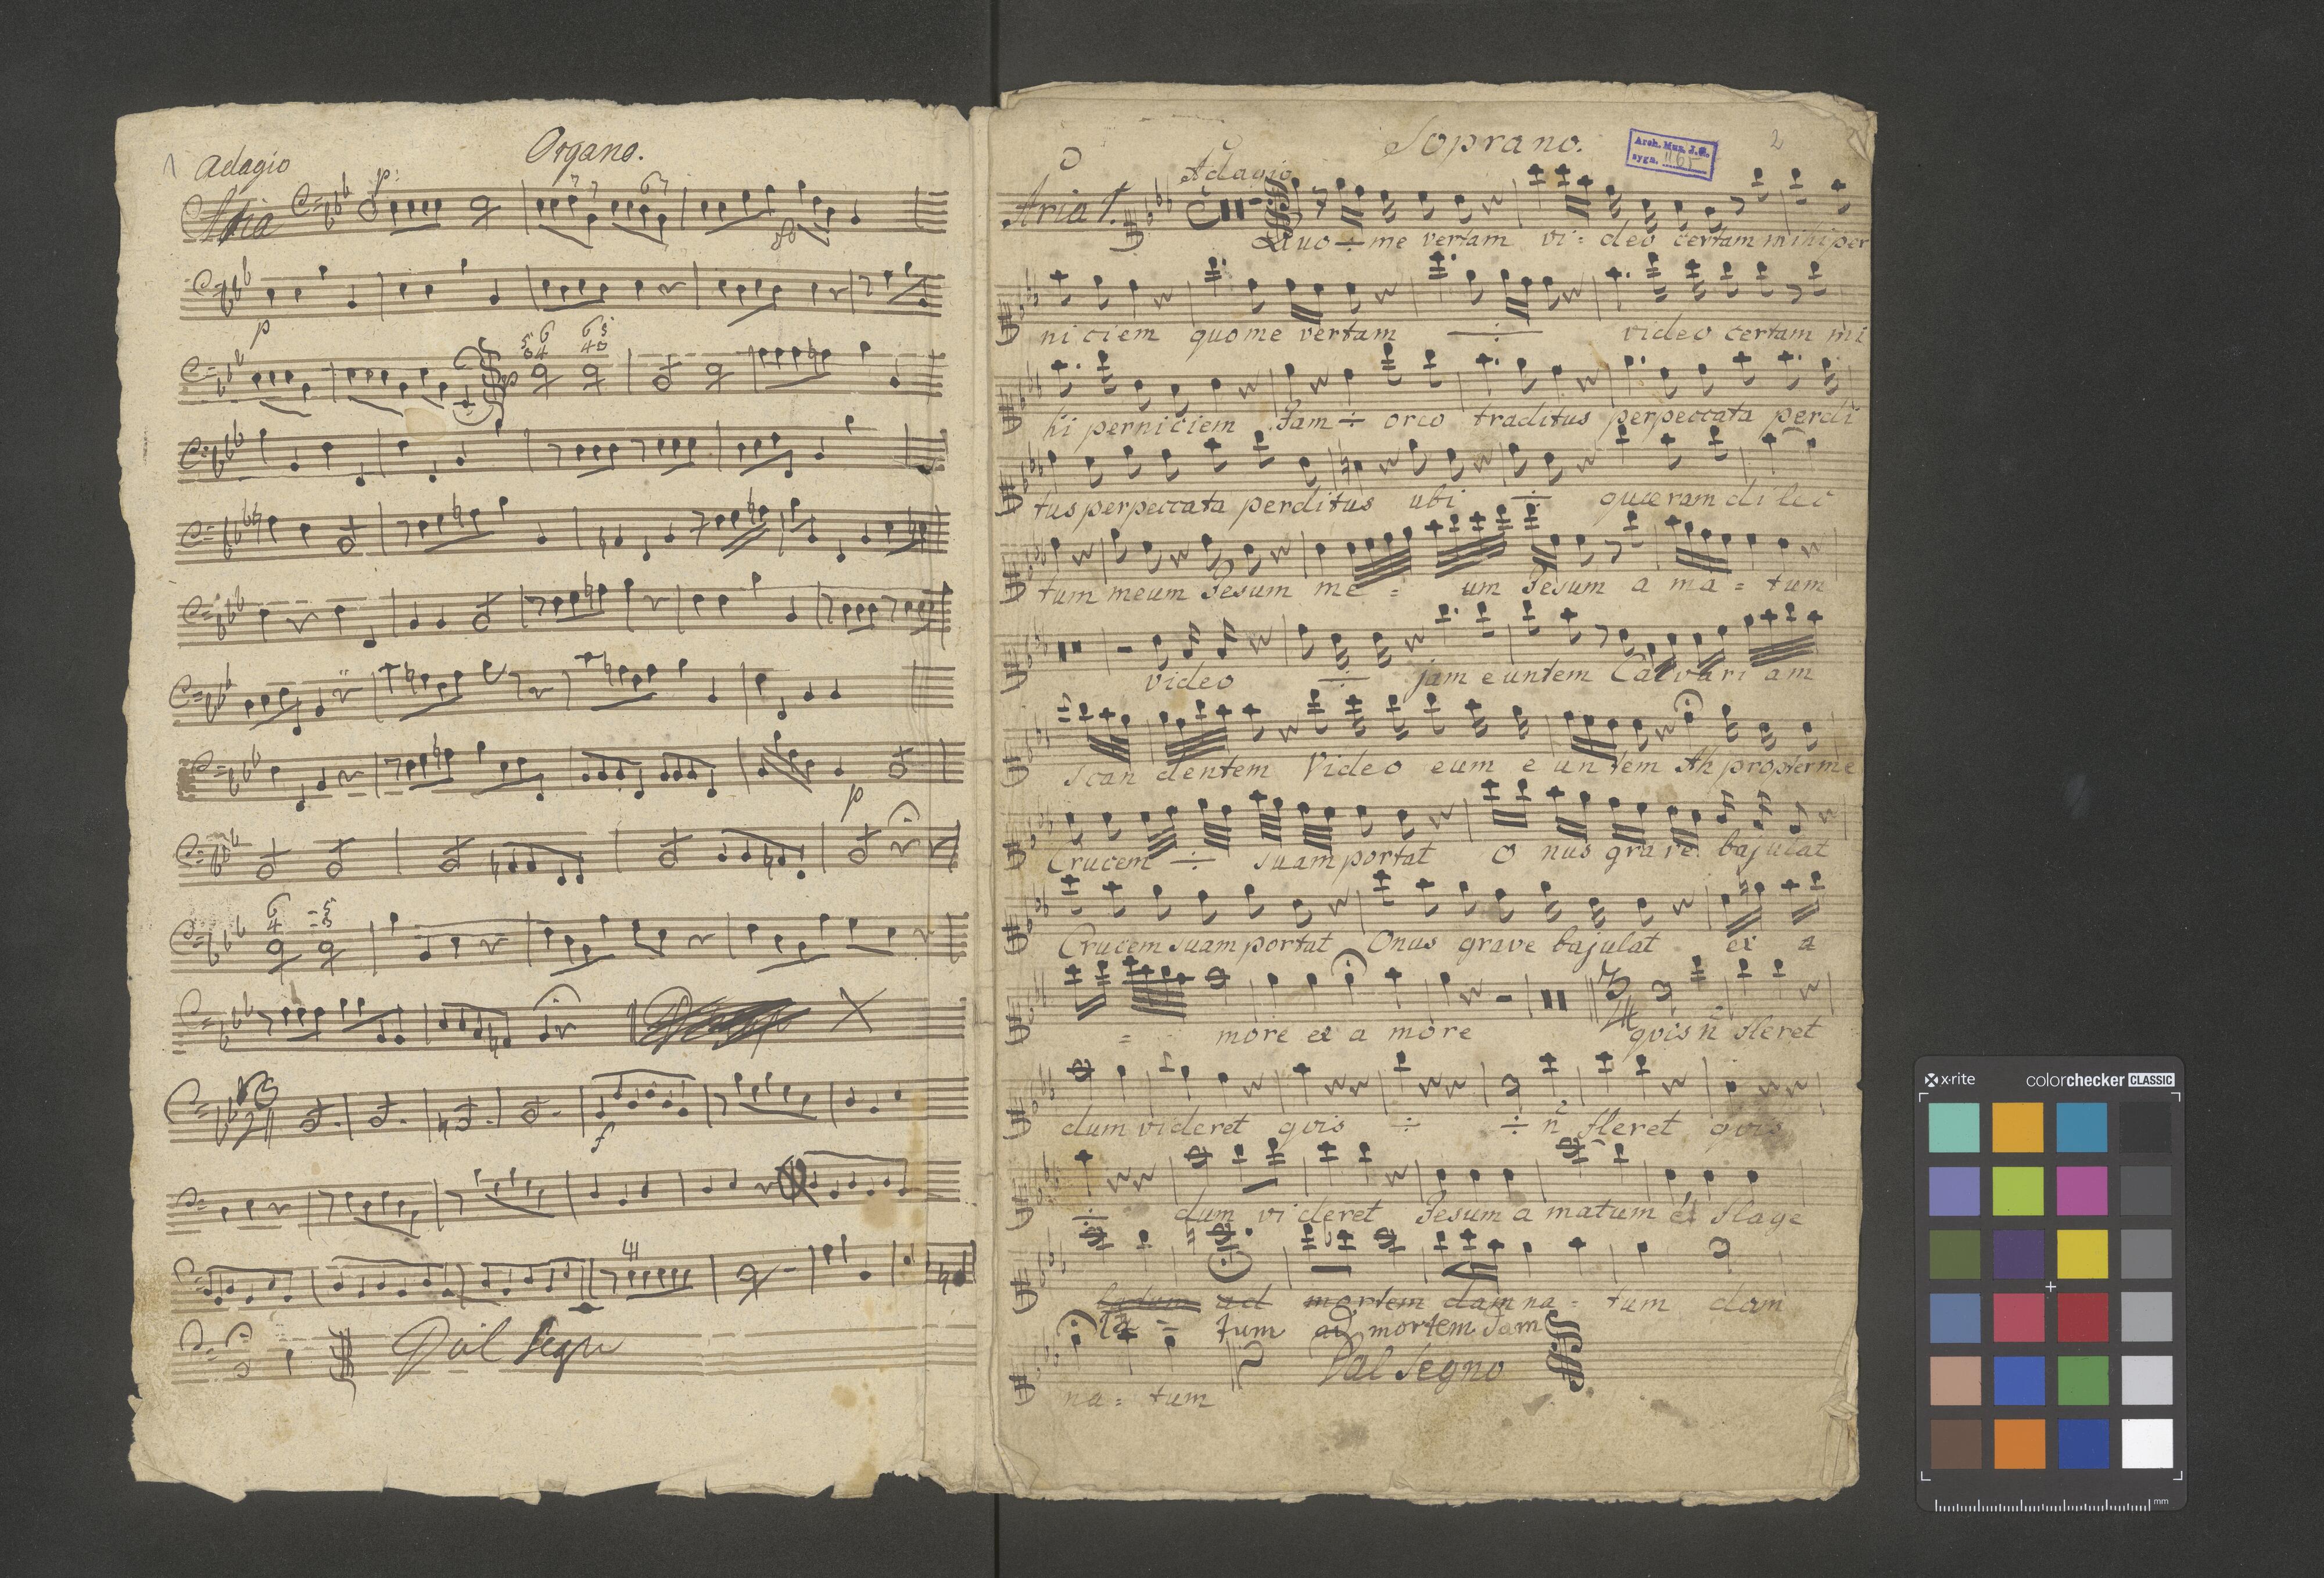 1
Adagio
Organo.
Aria
p:
p
p
f
Dal Segn
Soprano.
2
Arch. Muz. J. G.
sygn. 1165
Adagio
Aria 1.
Quo ÷ me vertam vi = deo certam mihi per
niciem quo me vertam ÷ video certam mi
hi perniciem Jam ÷ orco traditus per peccata perdi
tus per peccata perditus ubi ÷ quæram dilec
tum meum Jesum me = um Jesum a ma = tum
video ÷ jam euntem Calvari am
Scan dentem Video eum e un tem Ah propter me
Crucem ÷ suam portat O nus grave bajulat
Crucem suam portat Onus grave bajulat ex a
= more ex a more quis n̄ fleret
dum videret quis ÷ ÷ n̄ fleret quis
÷ dum videret Jesum a matum et flage
ad mortem dam na = tum dam
la = tum ad mortem dam
Dal Segno
na = tum
x-rite
colorchecker CLASSIC
mm